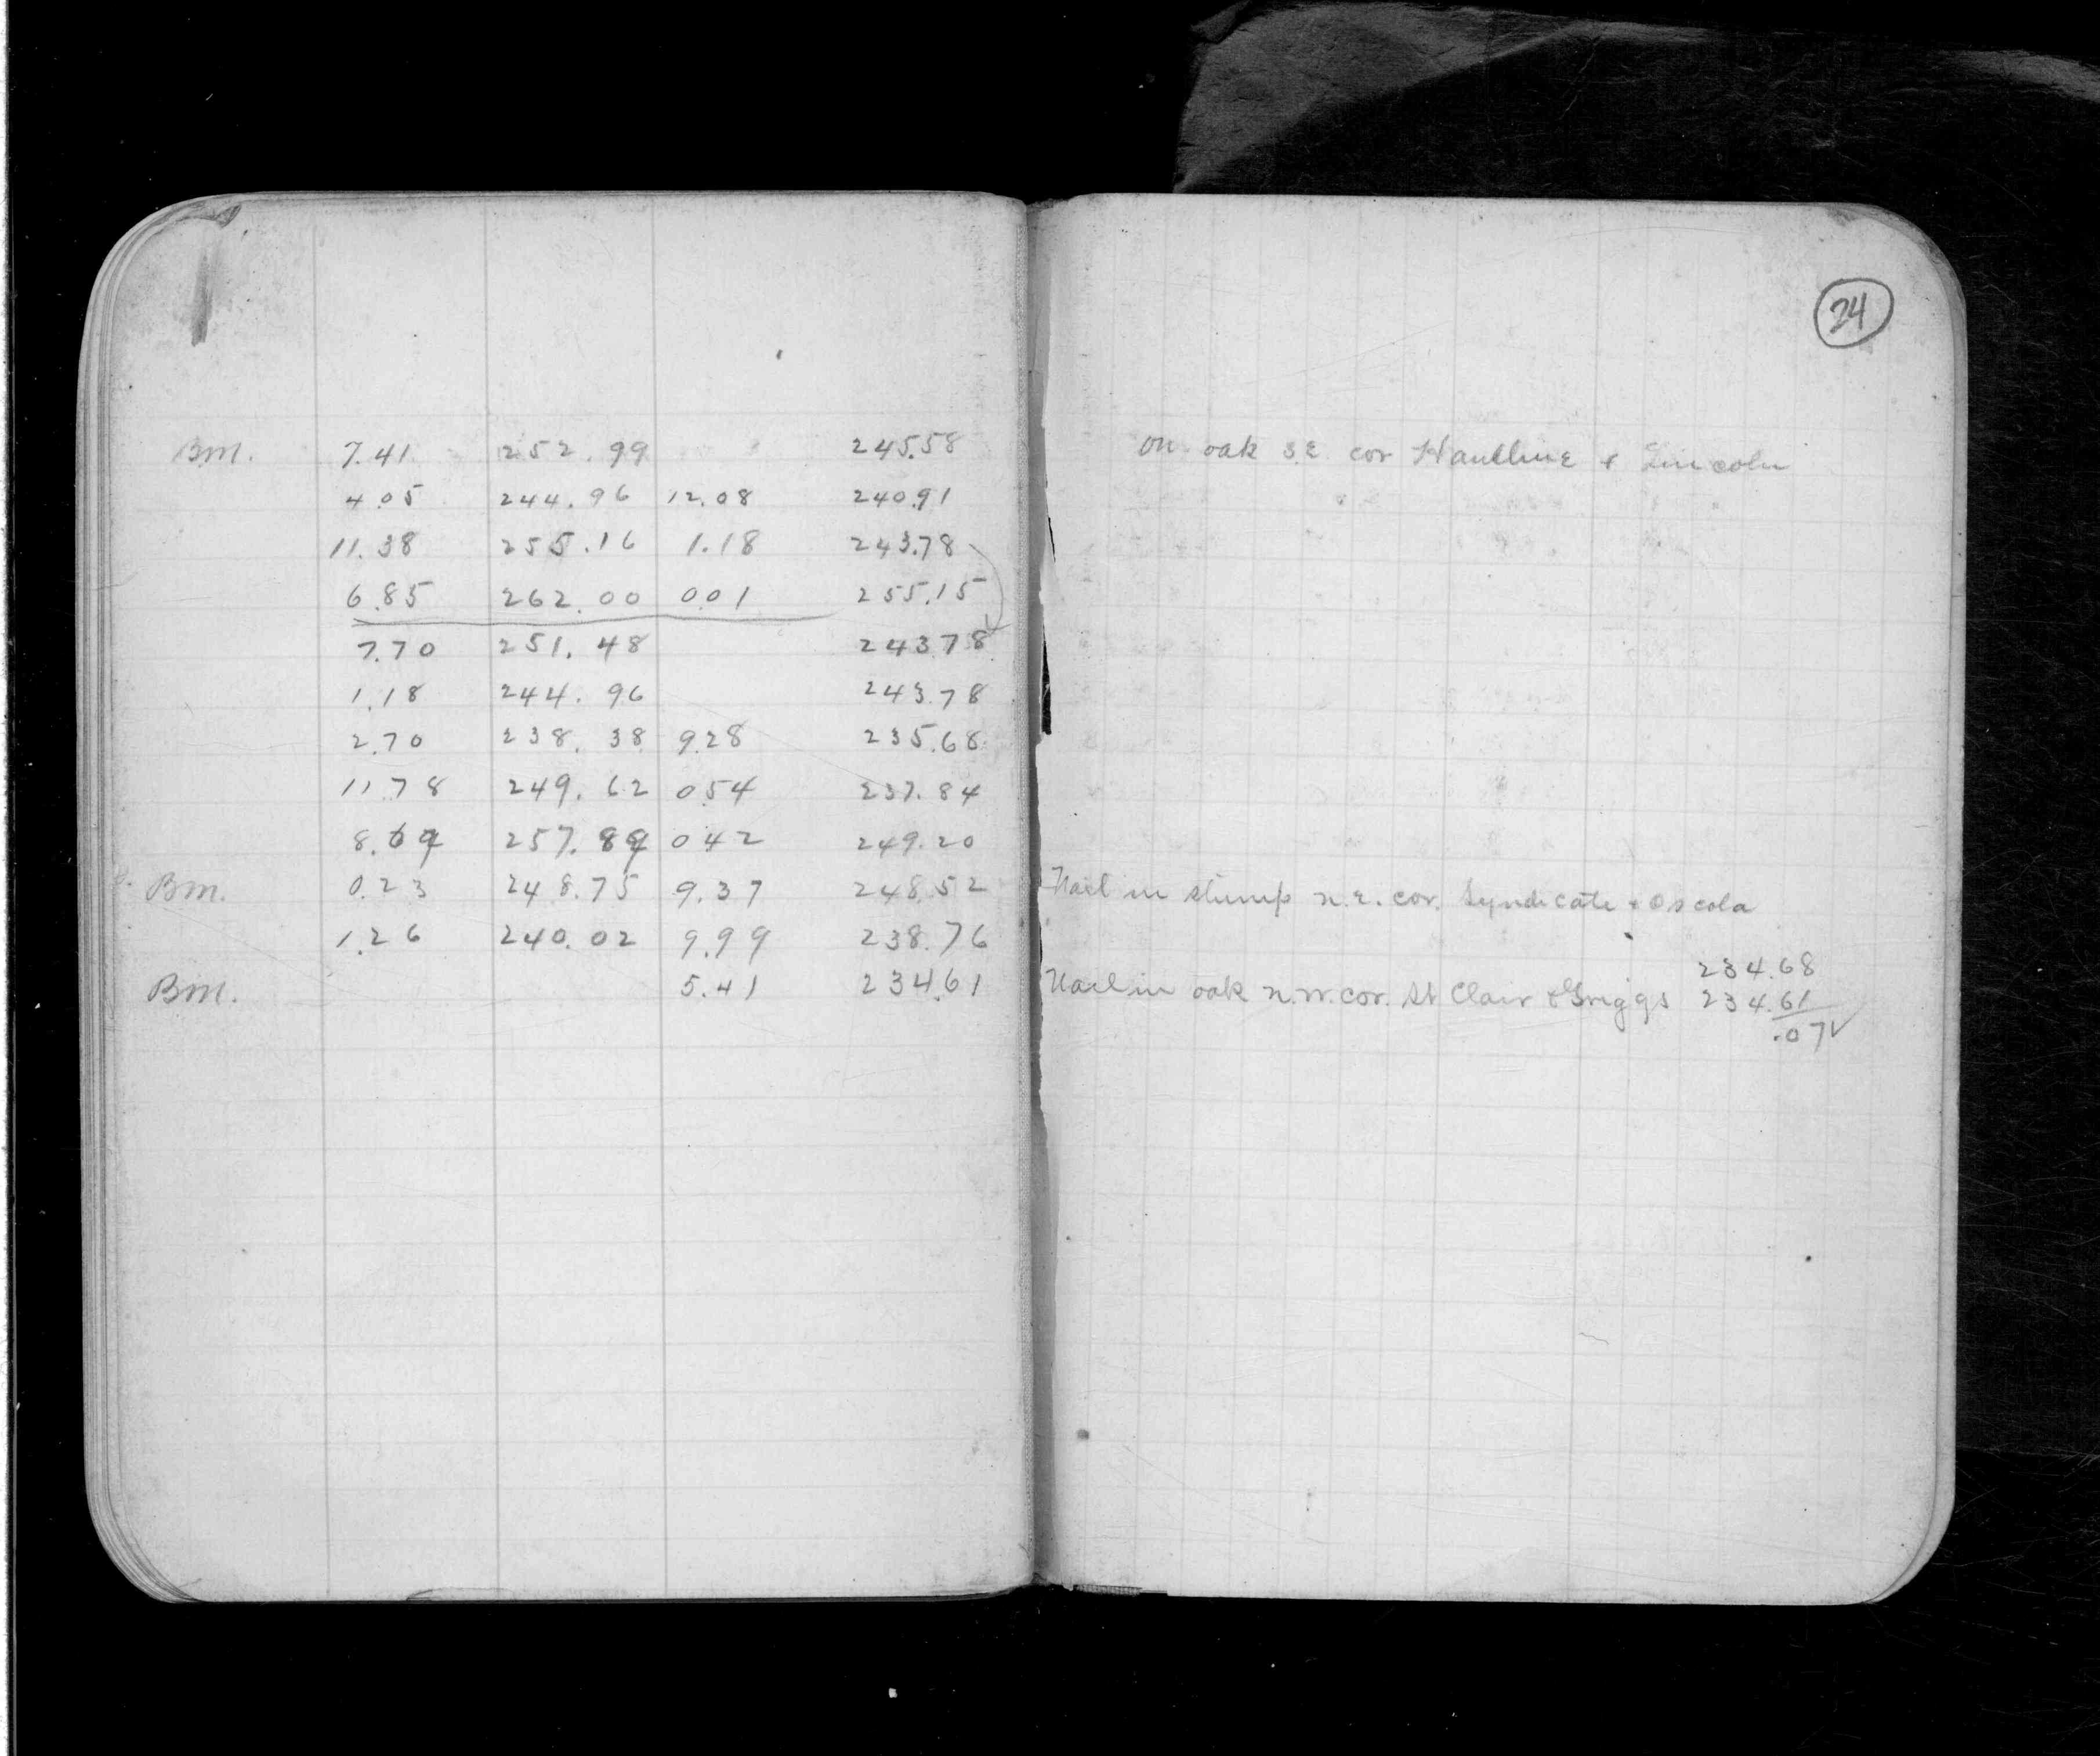 24
B.M. 7.41 252.99 245.58 on oak S.E. cor Hamline & Lincoln
4.05 244.96 12.08 240.91
11.38 255.16 1.18 243.78
6.85 262.00 0.01 255.15
7.70 251.48 243.78
1.18 244.96 243.78
2.70 238.38 9.28 235.68
11.78 249.62 0.54 237.84
8.69 257.89 0.42 249.20
B.M. 0.23 248.75 9.37 248.52 Nail in stump N.E. cor. Syndicate & Oscola
1.26 240.02 9.99 238.76
234.68
B.M. 5.41 234.61 Nail in oak N.W. cor. St. Clair & Griggs 234.61
.07✓